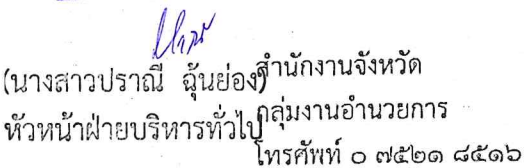 (นางสาวปราณี ฉุ้นย่อง)
หัวหน้าฝ่ายบริหารทั่วไป
สำนักงานจังหวัด
กลุ่มงานอำนวยการ
โทรศัพท์ ๐ ๗๕๒๑ ๘๕๑๖